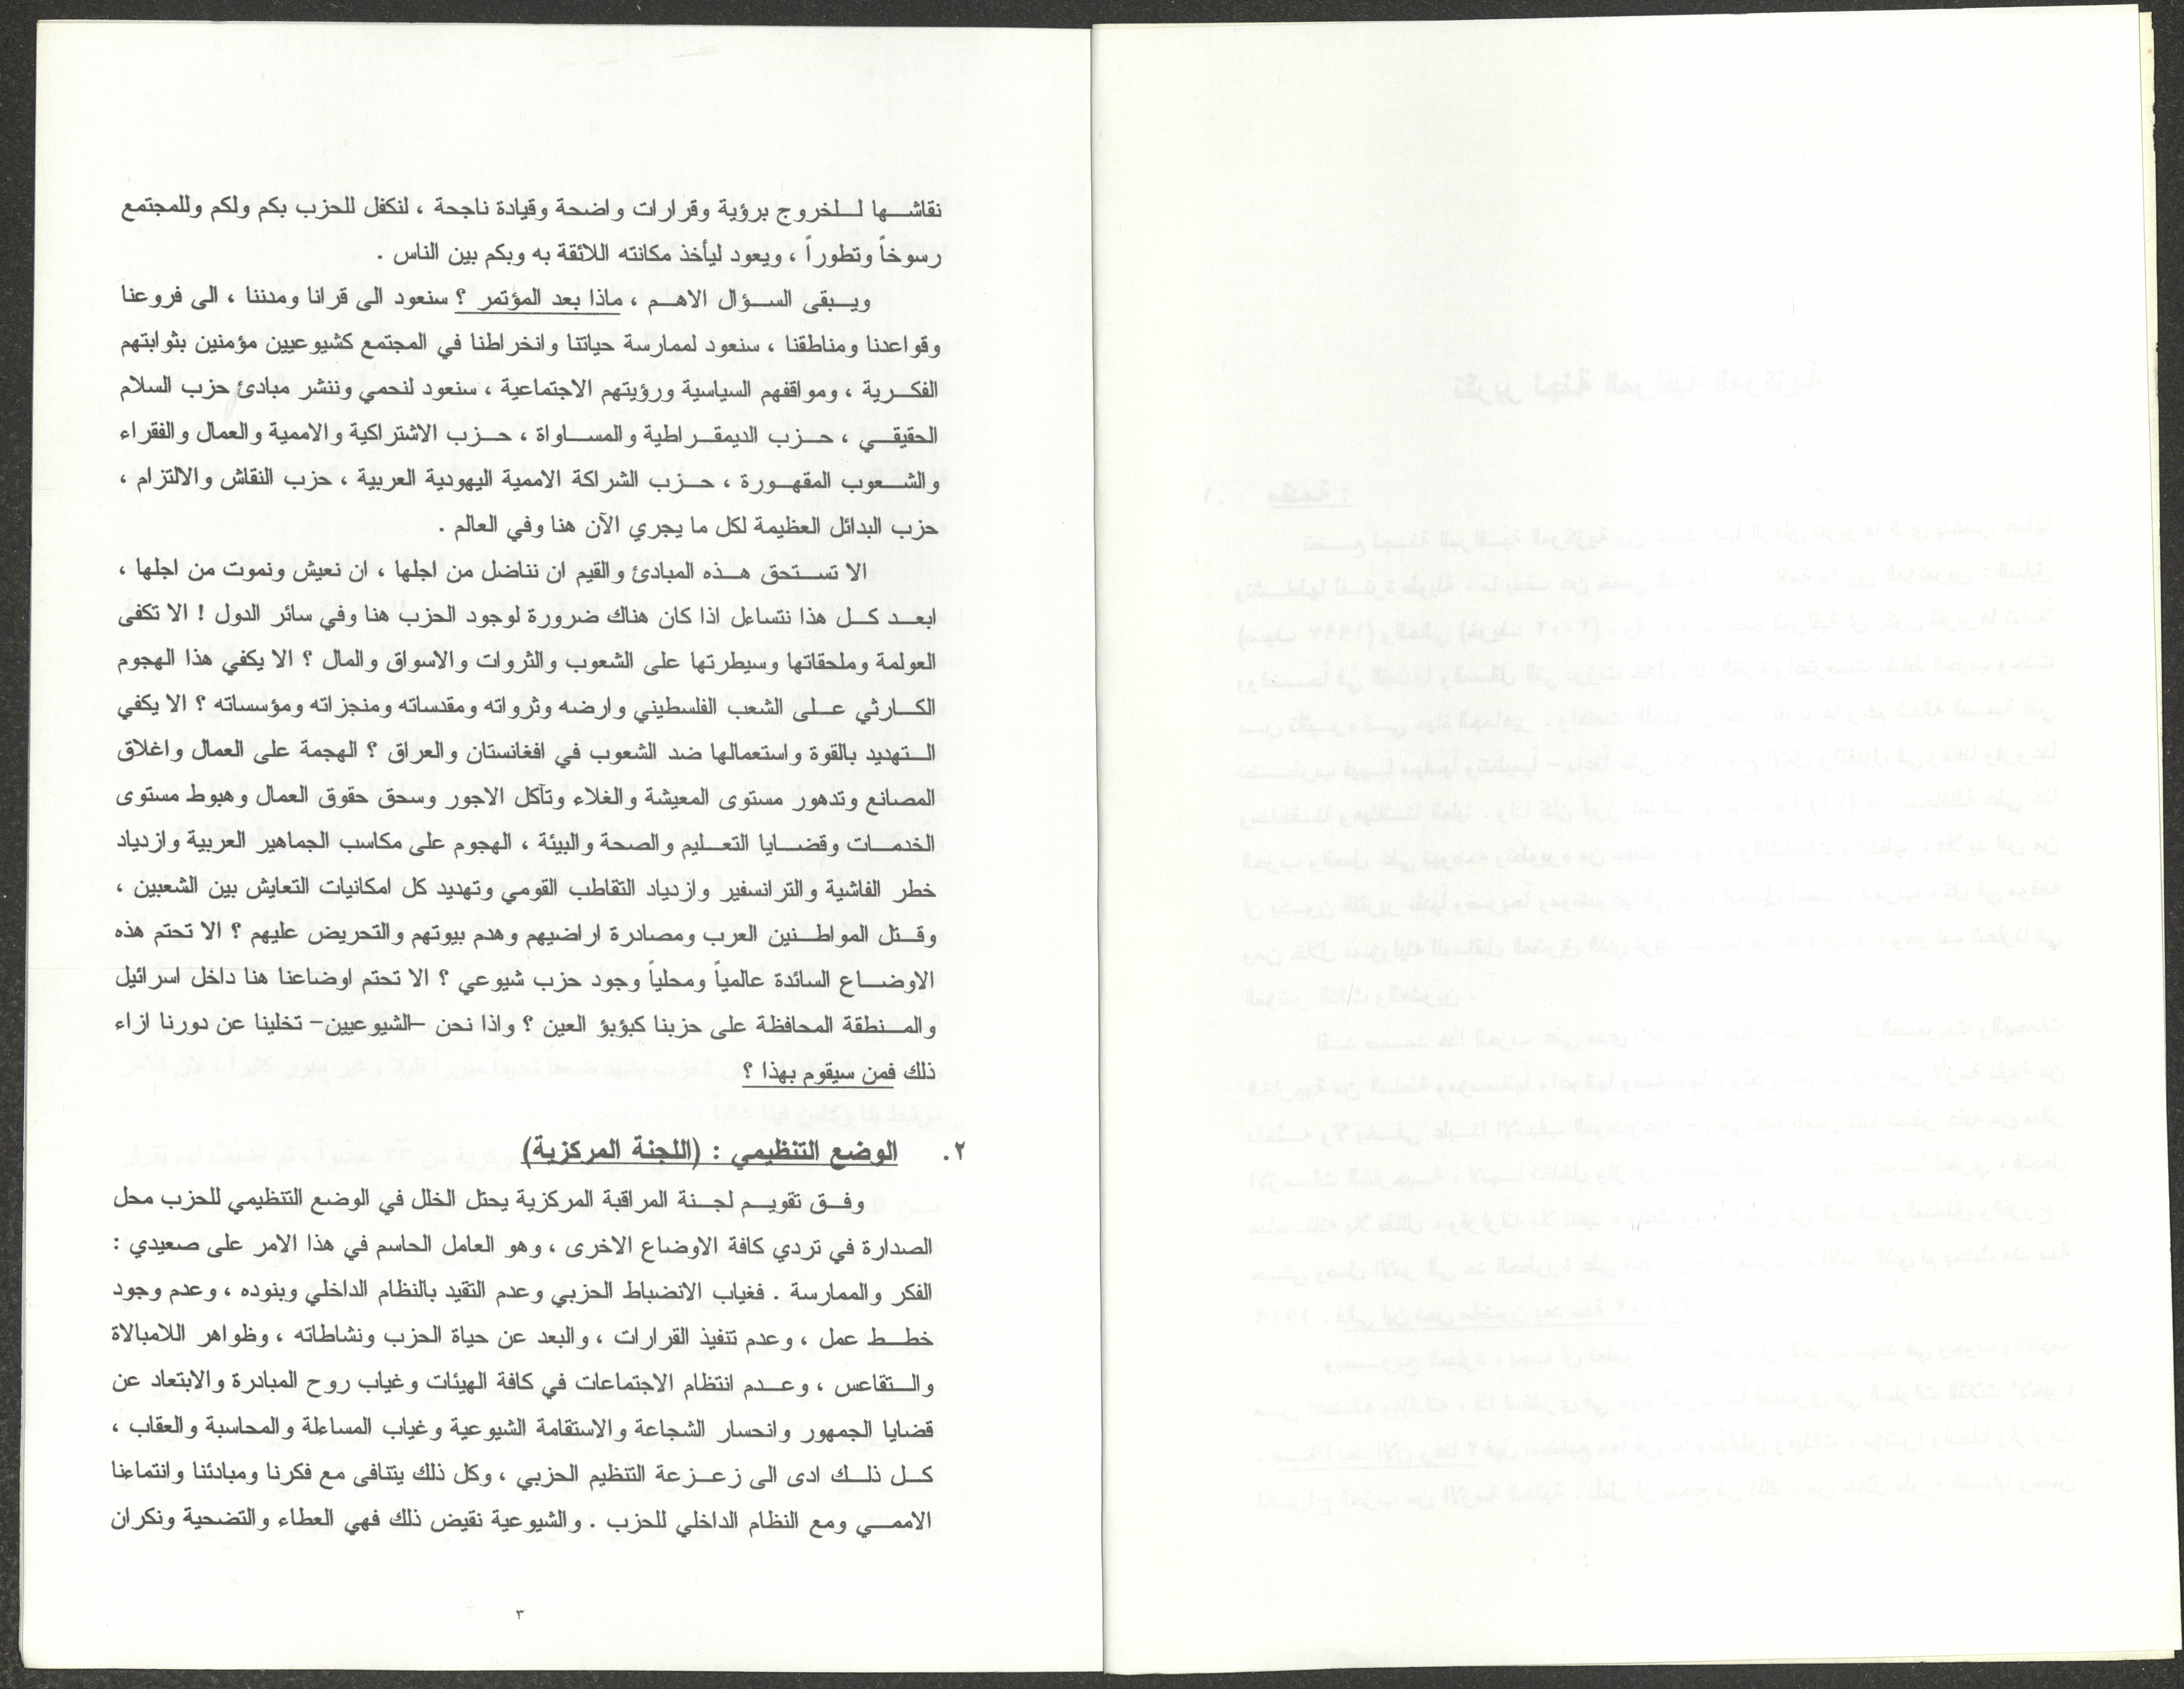 نقاشها للخروج برؤية وقرارات واضحة وقيادة ناجحة ، لنكفل للحزب بكم ولكم وللمجتمع
رسوخاً وتطوراً ، ويعود ليأخذ مكانته اللائقة به وبكم بين الناس .
ويبقى السؤال الاهم ، ماذا بعد المؤتمر ؟ سنعود الى قرانا ومدننا ، الى فروعنا
وقواعدنا ومناطقنا ، سنعود لممارسة حياتنا وانخراطنا في المجتمع كشيوعيين مؤمنين بثوابتهم
الفكرية ، ومواقفهم السياسية ورؤيتهم الاجتماعية ، سنعود لنحمي وننشر مبادئ حزب السلام
الحقيقي ، حزب الديمقراطية والمساواة ، حزب الاشتراكية والاممية والعمال والفقراء
والشعوب المقهورة ، حزب الشراكة الاممية اليهودية العربية ، حزب النقاش والالتزام ،
حزب البدائل العظيمة لكل ما يجري الآن هنا وفي العالم .
الا تستحق هذه المبادئ والقيم ان نناضل من اجلها ، ان نعيش ونموت من اجلها ،
ابعد كل هذا نتساءل اذا كان هناك ضرورة لوجود الحزب هنا وفي سائر الدول ! الا تكفى
العولمة وملحقاتها وسيطرتها على الشعوب والثروات والاسواق والمال ؟ الا يكفي هذا الهجوم
الكارثي على الشعب الفلسطيني وارضه وثرواته ومقدساته ومنجزاته ومؤسساته ؟ الا يكفي
التهديد بالقوة واستعمالها ضد الشعوب في افغانستان والعراق ؟ الهجمة على العمال واغلاق
المصانع وتدهور مستوى المعيشة والغلاء وتآكل الاجور وسحق حقوق العمال وهبوط مستوى
الخدمات وقضايا التعليم والصحة والبيئة ، الهجوم على مكاسب الجماهير العربية وازدياد
خطر الفاشية والترانسفير وازدياد التقاطب القومي وتهديد كل امكانيات التعايش بين الشعبين ،
وقتل المواطنين العرب ومصادرة اراضيهم وهدم بيوتهم والتحريض عليهم ؟ الا تحتم هذه
الاوضاع السائدة عالمياً ومحلياً وجود حزب شيوعي ؟ الا تحتم اوضاعنا هنا داخل اسرائيل
والمنطقة المحافظة على حزبنا كبؤبؤ العين ؟ واذا نحن -الشيوعيين- تخلينا عن دورنا ازاء
ذلك فمن سيقوم بهذا ؟
٢. الوضع التنظيمي : (اللجنة المركزية)
وفق تقويم لجنة المراقبة المركزية يحتل الخلل في الوضع التنظيمي للحزب محل
الصدارة في تردي كافة الاوضاع الاخرى ، وهو العامل الحاسم في هذا الامر على صعيدي :
الفكر والممارسة . فغياب الانضباط الحزبي وعدم التقيد بالنظام الداخلي وبنوده ، وعدم وجود
خطط عمل ، وعدم تنفيذ القرارات ، والبعد عن حياة الحزب ونشاطاته ، وظواهر اللامبالاة
والتقاعس ، وعدم انتظام الاجتماعات في كافة الهيئات وغياب روح المبادرة والابتعاد عن
قضايا الجمهور وانحسار الشجاعة والاستقامة الشيوعية وغياب المساءلة والمحاسبة والعقاب ،
كل ذلك ادى الى زعزعة التنظيم الحزبي ، وكل ذلك يتنافى مع فكرنا ومبادئنا وانتماءنا
الاممي ومع النظام الداخلي للحزب . والشيوعية نقيض ذلك فهي العطاء والتضحية ونكران
٣